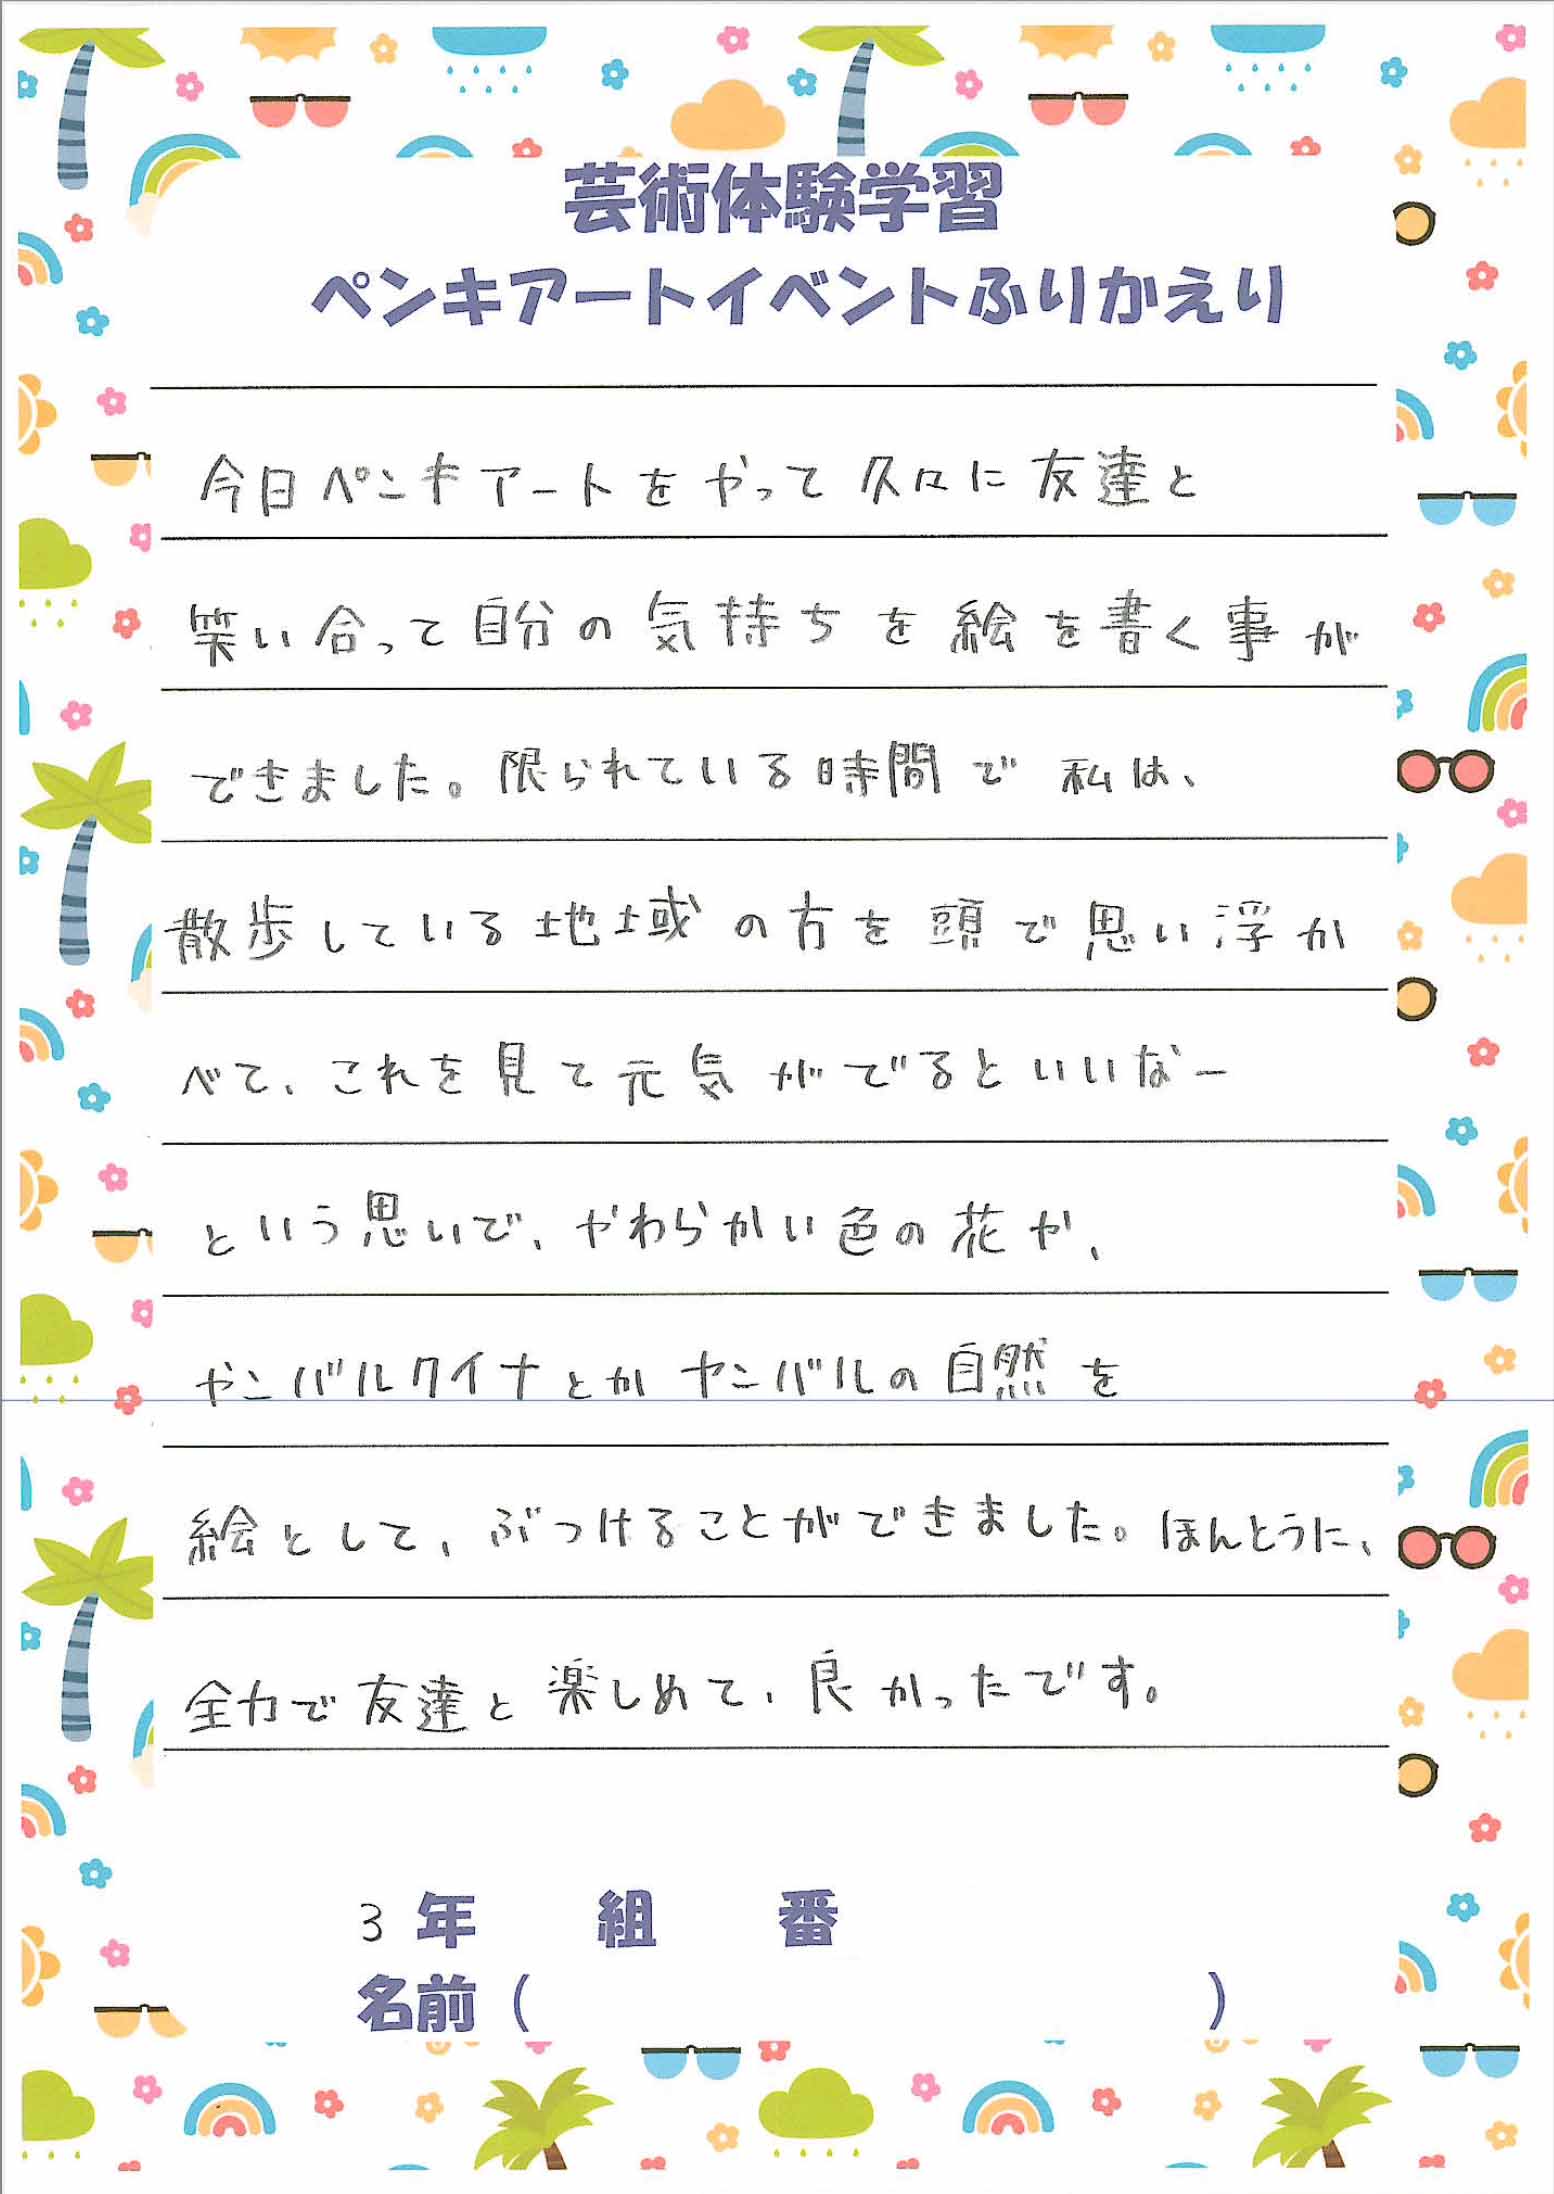 芸術体験学習
ペンキアートイベントふりかえり
今日ペンキアートをやって久々に友達と
笑い合って自分の気持ちを絵を書く事が
できました。限られている時間で私は、
散歩している地域の方を頭で思い浮か
べて、これを見て元気がでるといいなー
という思いで、やわらかい色の花や、
ヤンバルクイナとかヤンバルの自然を
絵として、ぶつけることができました。ほんとうに、
全力で友達と楽しめて、良かったです。
3年 組 番
名前( )